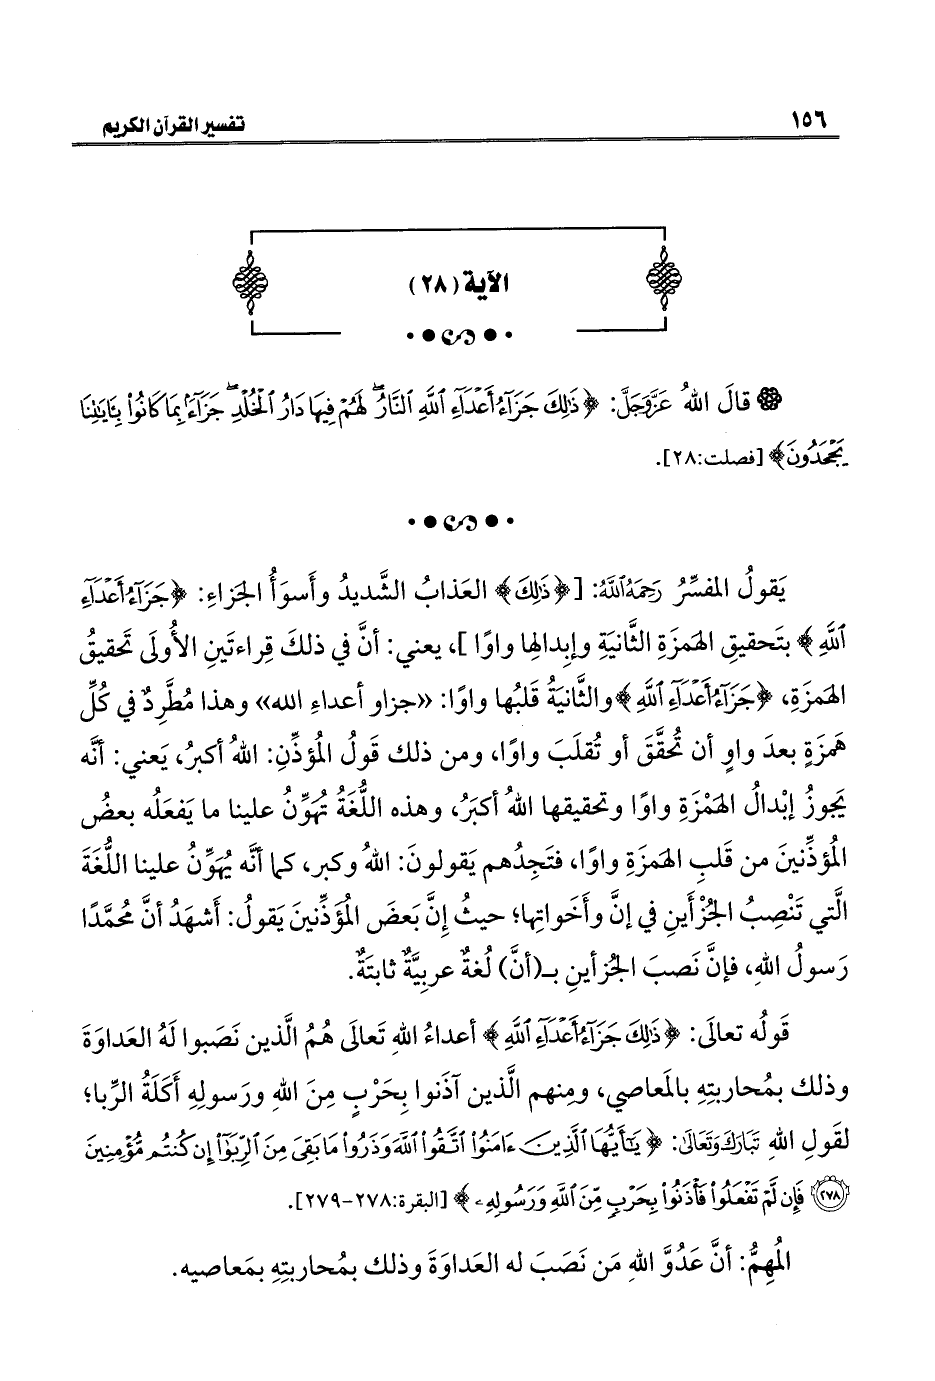 ١٥٦
تفسير القرآن الكريم
الآية (٢٨)
قالَ اللهُ عَزَّوَجَلَّ: ﴿ذَٰلِكَ جَزَآءُ أَعۡدَآءِ ٱللَّهِ ٱلنَّارُۖ لَهُمۡ فِيهَا دَارُ ٱلۡخُلۡدِۖ جَزَآءَۢ بِمَا كَانُواْ بِـَٔايَٰتِنَا
يَجۡحَدُونَ﴾ [فصلت:٢٨].
يَقولُ المفسِّرُ رَحِمَهُ اللَّهُ: [﴿ذَٰلِكَ﴾ العَذابُ الشَّديدُ وأَسوَأُ الجَزاءِ: ﴿جَزَآءُ أَعۡدَآءِ
ٱللَّهِ﴾ بتَحقيقِ الهَمزةِ الثَّانيَةِ وإبدالِها واوًا]، يعني: أنَّ في ذلكَ قِراءتَينِ الأُولَى تَحقيقُ
الهَمزَةِ، ﴿جَزَآءُ أَعۡدَآءِ ٱللَّهِ﴾ والثَّانيَةُ قَلبُها واوًا: «جزاو أعداءِ الله» وهذا مُطَّرِدٌ في كُلِّ
هَمزةٍ بعدَ واوٍ أن تُحقَّقَ أو تُقلَبَ واوًا، ومن ذلك قَولُ المُؤذِّنِ: اللهُ أكبرُ، يَعني: أنَّه
يَجوزُ إبْدالُ الهَمْزَةِ واوًا وتحقيقها اللهُ أكبَرُ، وهذه اللُّغَةُ تُهَوِّنُ علينا ما يَفعَلُه بعضُ
المُؤذِّنينَ من قَلبِ الهَمزةِ واوًا، فتَجِدُهم يَقولونَ: اللهُ وكبر، كما أنَّه يُهَوِّنُ علينا اللُّغَةَ
الَّتي تَنْصِبُ الجُزْأَينِ في إنَّ وأَخَواتِها؛ حيثُ إنَّ بَعضَ المُؤذِّنينَ يَقولُ: أَشهَدُ أنَّ مُحمَّدًا
رَسولُ اللهِ، فإنَّ نَصبَ الجُزأينِ بـ(أنَّ) لُغةٌ عربيَّةٌ ثابتَةٌ.
قَولُه تعالَى: ﴿ذَٰلِكَ جَزَآءُ أَعۡدَآءِ ٱللَّهِ﴾ أعداءُ اللهِ تَعالَى هُمُ الَّذين نَصَبوا لَهُ العَداوَةَ
وذلك بمُحاربتِهِ بالمَعاصي، ومِنهم الَّذين آذَنوا بِحَرْبٍ مِنَ اللهِ ورَسولِهِ أَكَلَةُ الرِّبا؛
لقَولِ اللهِ تَبَارَكَ وَتَعَالَى: ﴿يَٰٓأَيُّهَا ٱلَّذِينَ ءَامَنُواْ ٱتَّقُواْ ٱللَّهَ وَذَرُواْ مَا بَقِيَ مِنَ ٱلرِّبَوٰٓاْ إِن كُنتُم مُّؤۡمِنِينَ
٢٧٨ فَإِن لَّمۡ تَفۡعَلُواْ فَأۡذَنُواْ بِحَرۡبٖ مِّنَ ٱللَّهِ وَرَسُولِهِۦ﴾ [البقرة:٢٧٨-٢٧٩].
المُهِمُّ: أنَّ عَدُوَّ اللهِ مَن نَصَبَ له العَداوَةَ وذلك بمُحاربتِهِ بمَعاصيه.